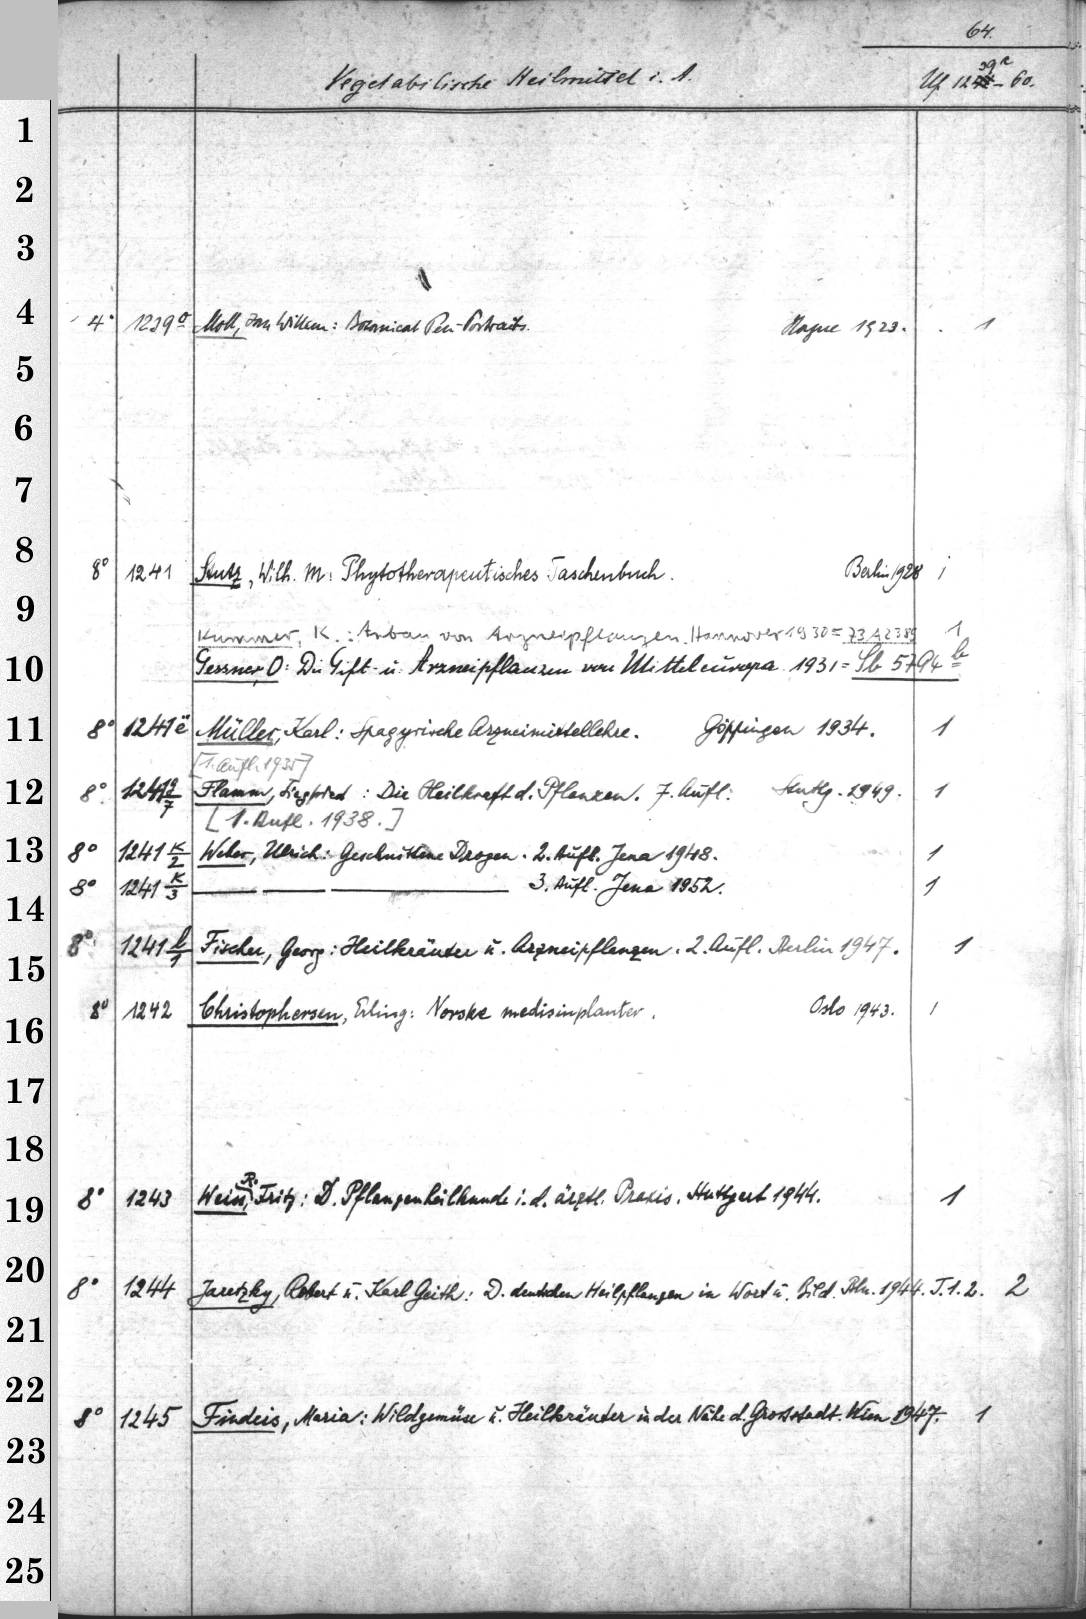 64.
Vegetabilische Heilmittel i. A. Uf 1239a - 60.
1
2
3
4 4° 1239a Moll, Jan Willem: Botanical Pen-Portraits. Hague 1923. 1
5
6
7
8 8° 1241 Stutz, Wilh. M: Phytotherapeutisches Taschenbuch. Berlin 1928 1
9 Kummer, K.: Anbau von Arzneipflanzen. Hannover 1930 = 73A2389 1
10 Gessner, O: Die Gift- u. Arzneipflanzen von Mitteleuropa 1931 = Sb 5794 b
11 8° 1241 e Müller, Karl: Spagyrische Arzneimittellehre. Göppingen 1934. 1
[1. Aufl. 1935]
12 8° 1241 g/7 Flamm, Siegfried: Die Heilkraft d. Pflanzen. 7. Aufl: Stuttg. 1949. 1
[1. Aufl. 1938.]
13 8° 1241 K/2 Weber, Ulrich: Geschnittene Drogen. 2. Aufl. Jena 1948. 1
14 8° 1241 K/3 ——— ——— ——— 3. Aufl. Jena 1952. 1
15 8° 1241 l/1 Fischer, Georg: Heilkräuter u. Arzneipflanzen. 2. Aufl. Berlin 1947. 1
16 8° 1242 Christophersen, Erling: Norske medisinplanter. Oslo 1943. 1
17
18
19 8° 1243 Weiss, R. Fritz: D. Pflanzenheilkunde i. d. ärztl. Praxis. Stuttgart 1944. 1
20 8° 1244 Jaretzky, Robert u. Karl Geith: D. deutschen Heilpflanzen in Wort u. Bild. Bln. 1944. T. 1. 2. 2
21
22
23 8° 1245 Findeis, Maria: Wildgemüse u. Heilkräuter in der Nähe d. Grossstadt. Wien 1947. 1
24
25